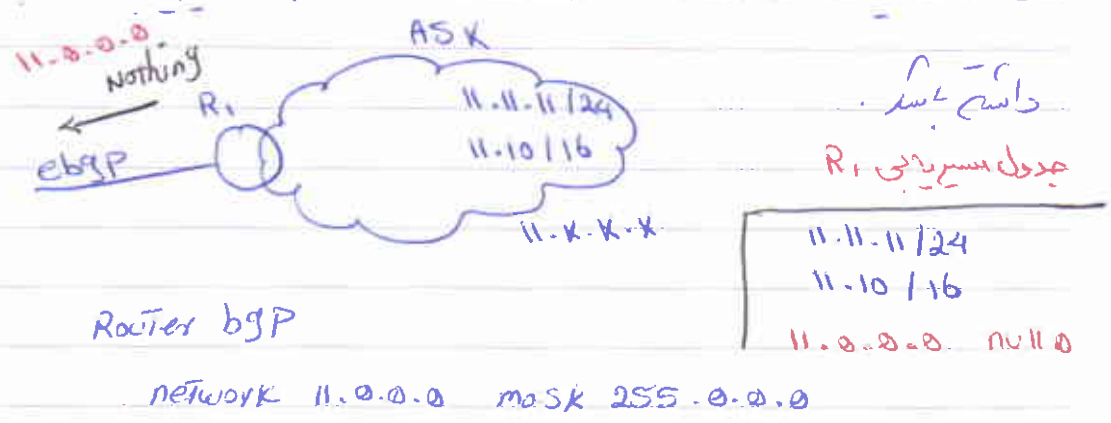 11.0.0.0
Nothing
ebgp
R1
ASK
11.11.11/24
11.10/16
11.x.x.x
داشته باشد.
جدول مسیریابی R1
11.11.11/24
11.10/16
11.0.0.0 null0
Router bgp
network 11.0.0.0 mask 255.0.0.0